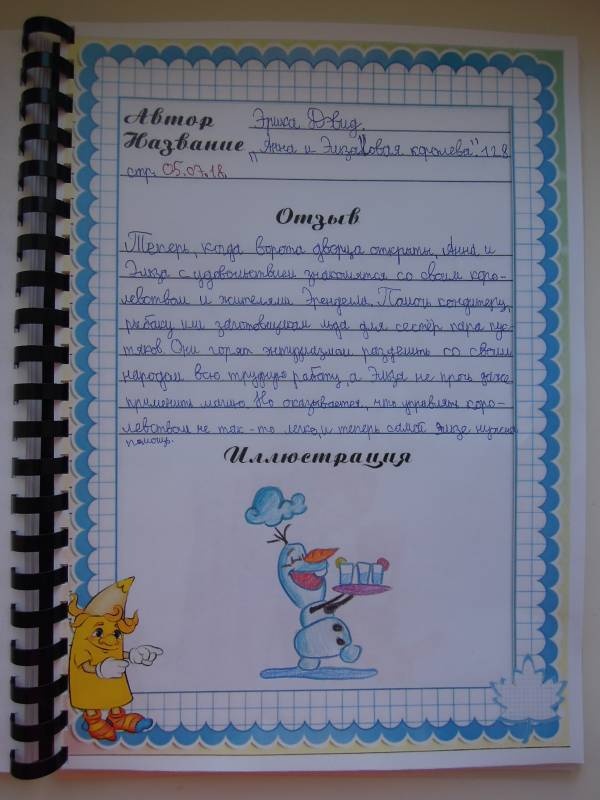 Автор Эрика Дэвид.
Название "Анна и Эльза" Новая королева". 128
стр. 05.07.18.
Отзыв
Теперь, когда ворота дворца открыты, Анна и
Эльза с удовольствием знакомятся со своим коро-
левством и жителями Эренделла. Помочь кондитеру,
рыбаку или заготовщикам льда для сестёр пара пус-
тяков. Они горят энтузиазмом разделить со своим
народом всю трудную работу, а Эльза не прочь даже
применить магию. Но оказывается, что управлять коро-
левством не так-то легко, и теперь самой Эльзе нужна
помощь.
Иллюстрация